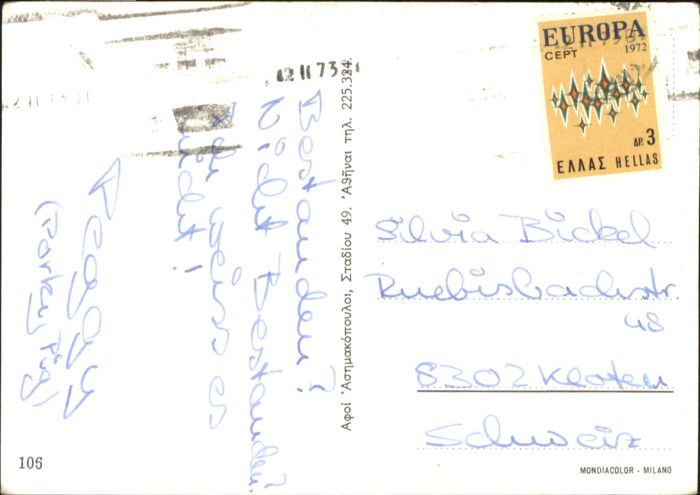 Bestanden?
Nicht Bestanden?
Ich weiss es
nicht!
Peggy
(Porky Pig)
106
Αφοί Ἀσημακόπουλοι, Σταδίου 49. Ἀθῆναι τηλ. 225.324
12 II 73
EUROPA
CEPT 1972
ΔΡ. 3
ΕΛΛΑΣ HELLAS
Silvia Bickel
Ruebisbachstr.
48
8302 Kloten
Schweiz
MONDIACOLOR - MILANO